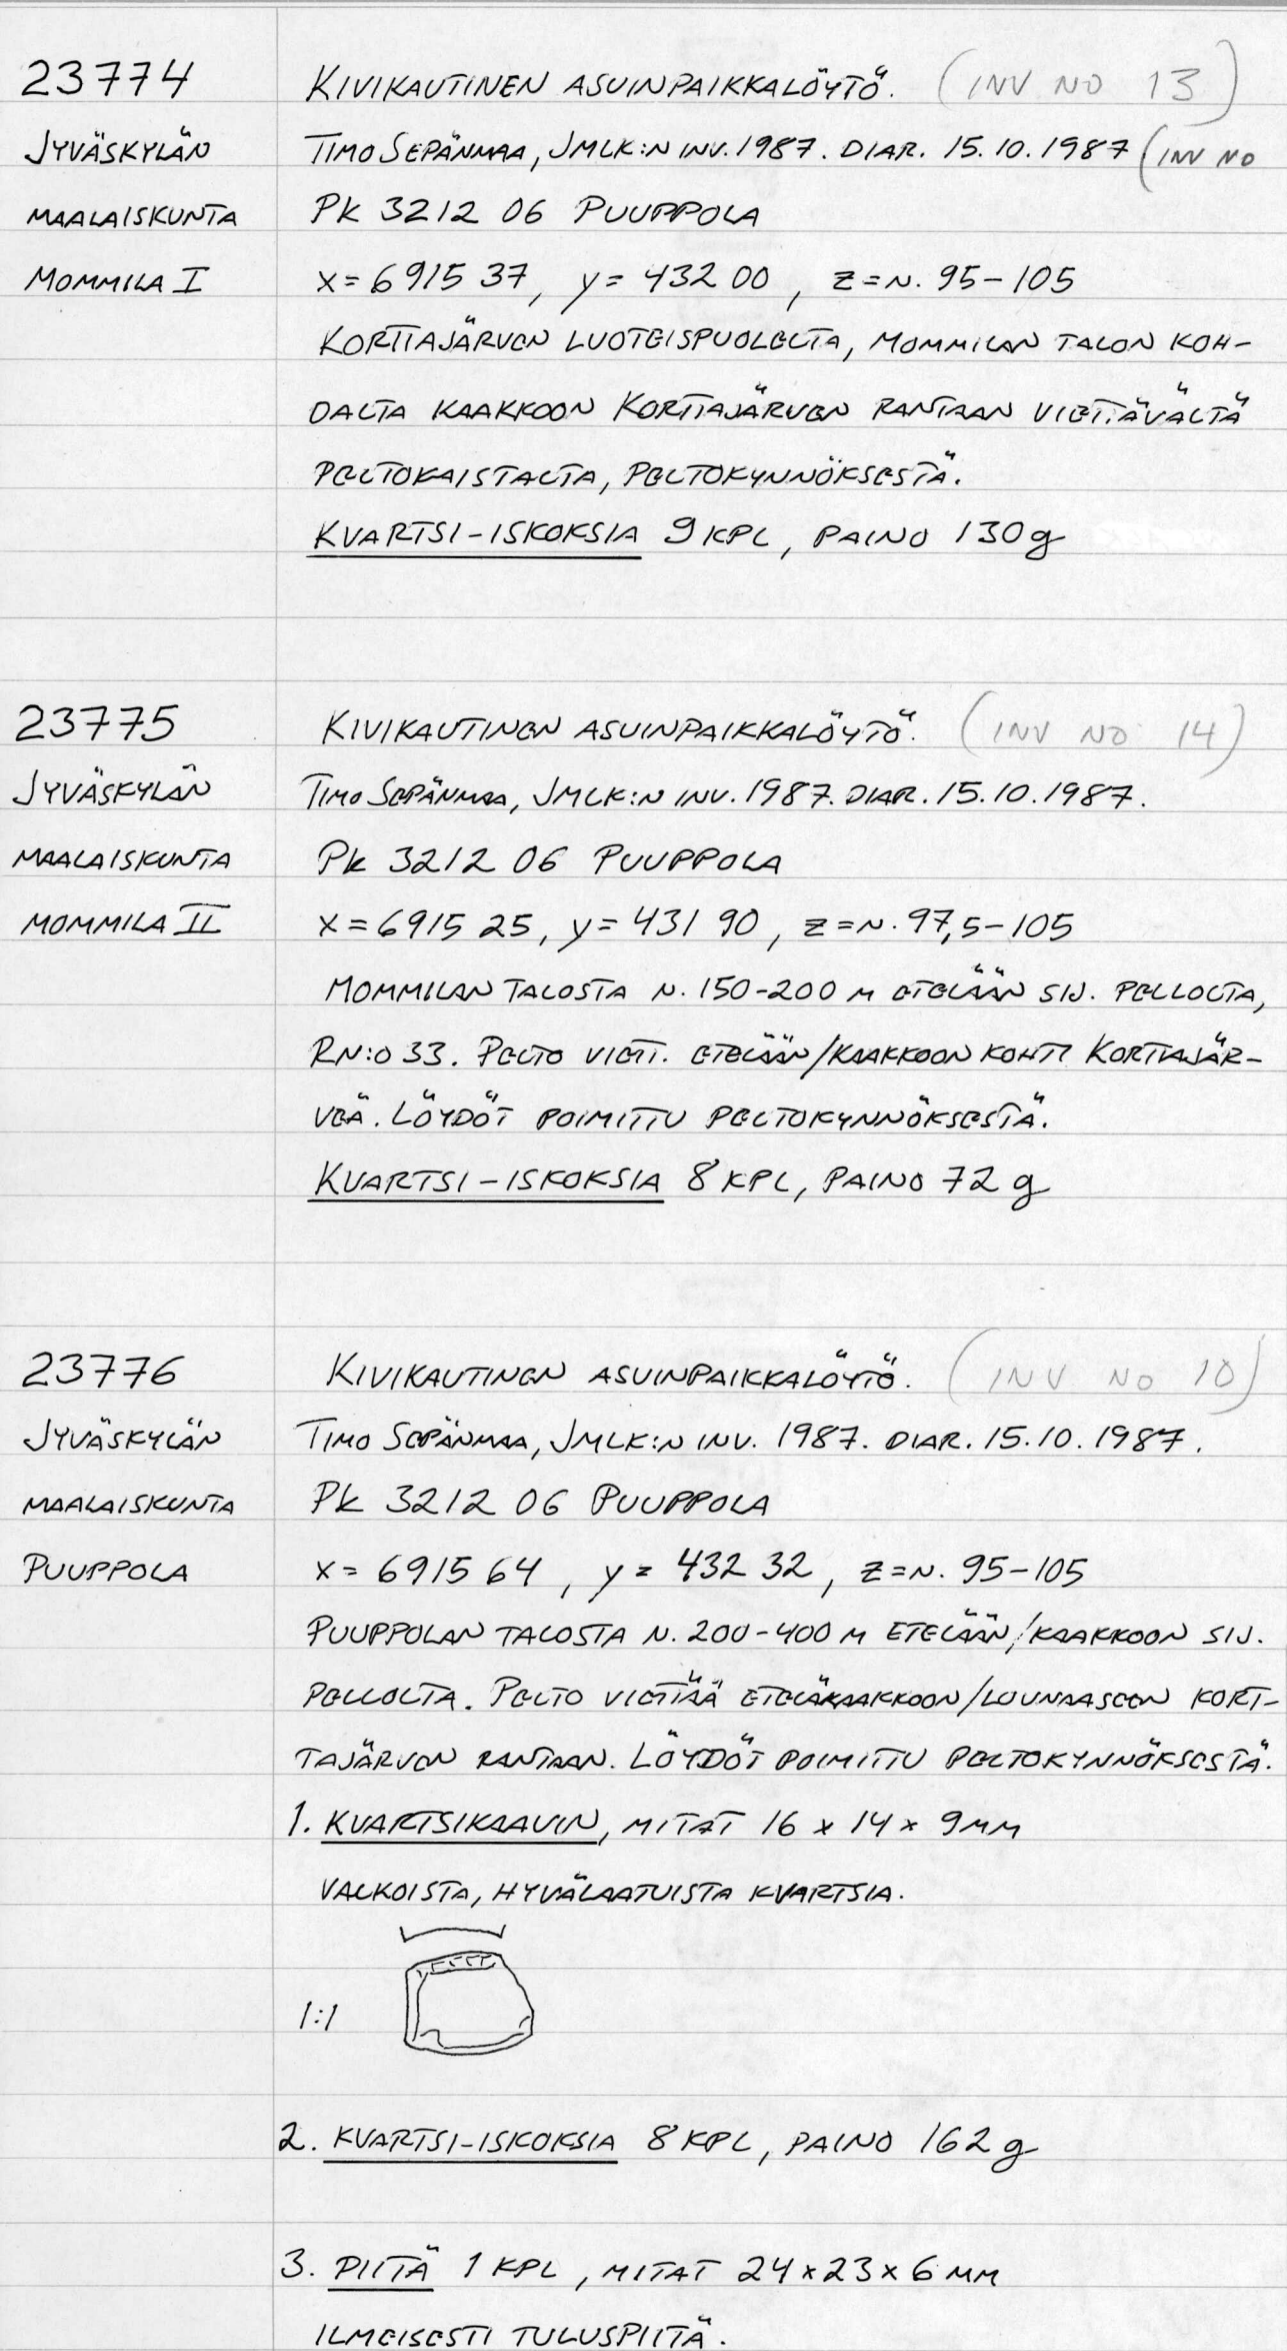 23774 KIVIKAUTINEN ASUINPAIKKALÖYTÖ. (INV NO 13)
JYVÄSKYLÄN TIMO SEPÄNMAA, JMLK:N INV. 1987. DIAR. 15.10.1987 (INV NO
MAALAISKUNTA PK 3212 06 PUUPPOLA
MOMMILA I x = 6915 37, y = 432 00, z = N. 95-105
KORTTAJÄRVEN LUOTEISPUOLELTA, MOMMILAN TALON KOH-
DALTA KAAKKOON KORTTAJÄRVEN RANTAAN VIETTÄVÄLTÄ
PELTOKAISTALTA, PELTOKYNNÖKSESTÄ.
KVARTSI-ISKOKSIA 9 KPL, PAINO 130 g
23775 KIVIKAUTINEN ASUINPAIKKALÖYTÖ. (INV NO 14)
JYVÄSKYLÄN TIMO SEPÄNMAA, JMLK:N INV. 1987. DIAR. 15.10.1987.
MAALAISKUNTA PK 3212 06 PUUPPOLA
MOMMILA II x = 6915 25, y = 431 90, z = N. 97,5-105
MOMMILAN TALOSTA N. 150-200 M ETELÄÄN SIJ. PELLOLTA,
RN:O 33. PELTO VIETT. ETELÄÄN/KAAKKOON KOHTI KORTTAJÄR-
VEÄ. LÖYDÖT POIMITTU PELTOKYNNÖKSESTÄ.
KVARTSI-ISKOKSIA 8 KPL, PAINO 72 g
23776 KIVIKAUTINEN ASUINPAIKKALÖYTÖ. (INV NO 10)
JYVÄSKYLÄN TIMO SEPÄNMAA, JMLK:N INV. 1987. DIAR. 15.10.1987.
MAALAISKUNTA PK 3212 06 PUUPPOLA
PUUPPOLA x = 6915 64, y = 432 32, z = N. 95-105
PUUPPOLAN TALOSTA N. 200-400 M ETELÄÄN/KAAKKOON SIJ.
PELLOLTA. PELTO VIETTÄÄ ETELÄKAAKKOON/LOUNAASEEN KORT-
TAJÄRVEN RANTAAN. LÖYDÖT POIMITTU PELTOKYNNÖKSESTÄ.
1. KVARTSIKAAVIN, MITAT 16 x 14 x 9 MM
VALKOISTA, HYVÄLAATUISTA KVARTSIA.
1:1
2. KVARTSI-ISKOKSIA 8 KPL, PAINO 162 g
3. PIITÄ 1 KPL, MITAT 24 x 23 x 6 MM
ILMEISESTI TULUSPIITÄ.